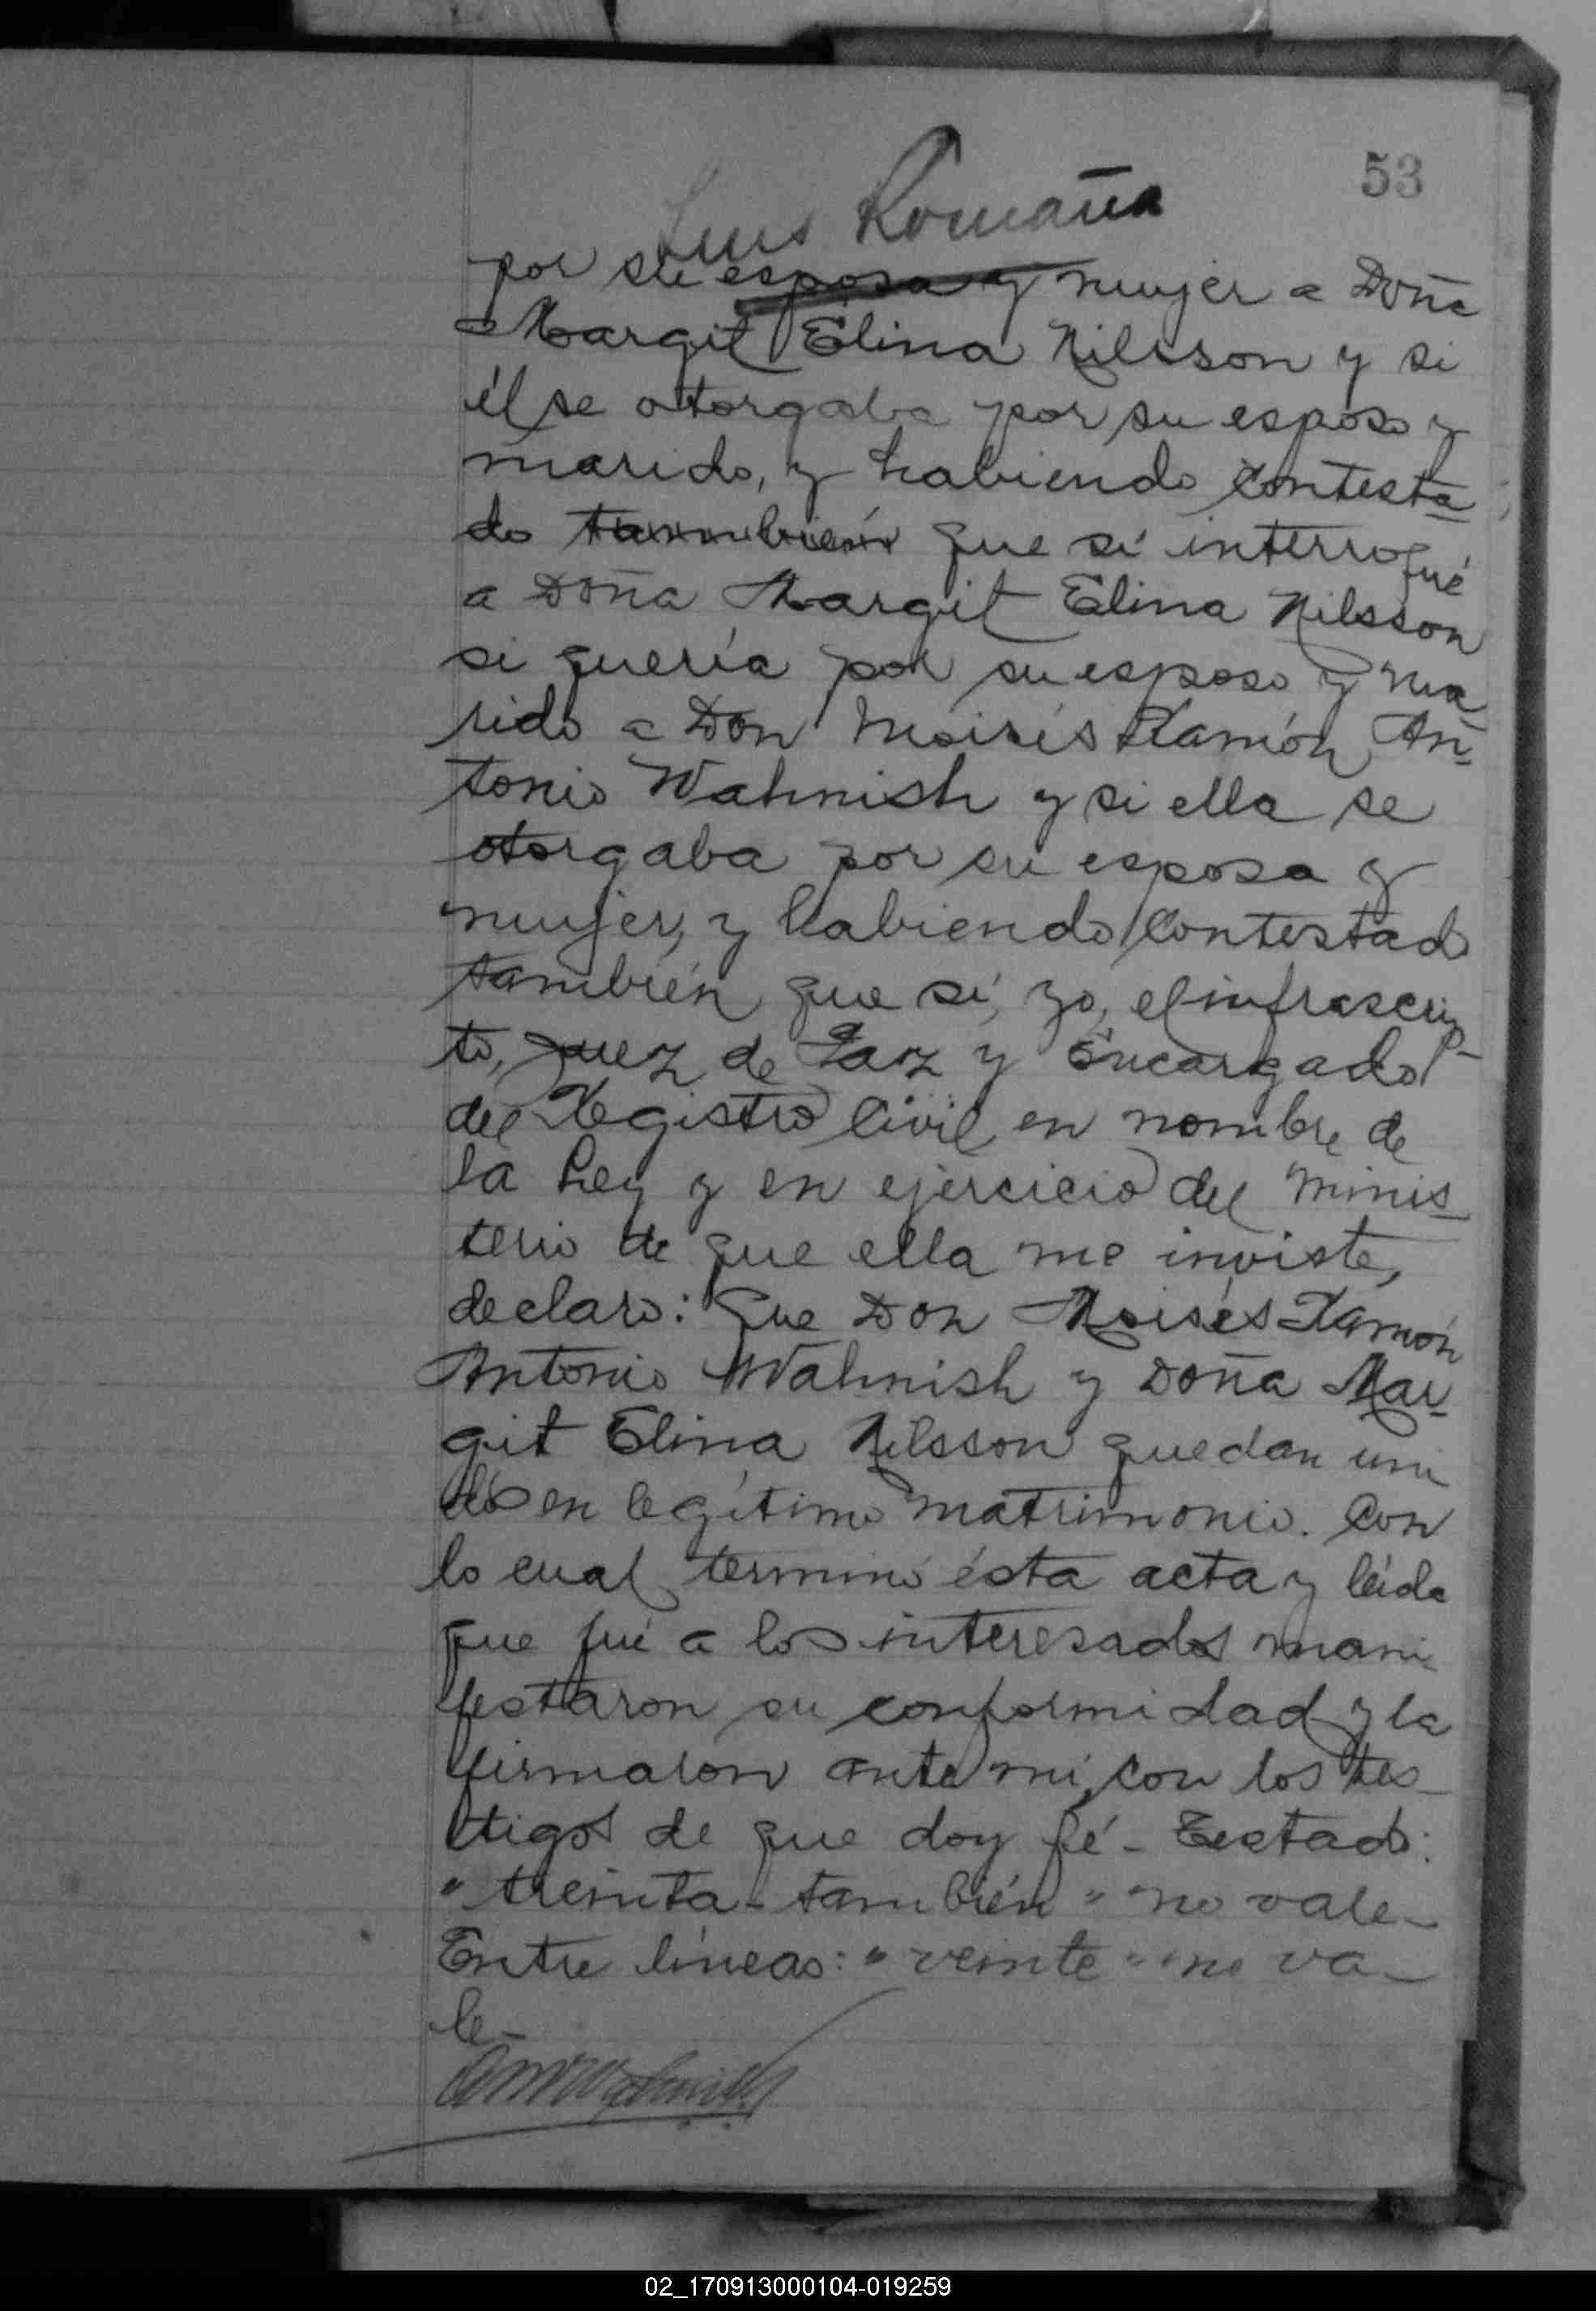 53
Luis Romaña
por su esposa y mujer a Doña
Margit Elina Nilsson y si
él se otorgaba por su esposo y
marido, y habiendo contesta-
do también que sí interrogué
a Doña Margit Elina Nilsson
si quería por su esposo y ma
rido a Don Moisés Ramón An-
tonio Wahnish y si ella se
otorgaba por su esposa y
mujer, y habiendo contestado
también que sí, yo, el infrascrip-
to, Juez de Paz y Encargado
del Registro Civil, en nombre de
la Ley y en ejercicio del minis-
terio de que ella me inviste,
declaro: Que Don Moisés Ramón
Antonio Wahnish y Doña Mar-
git Elina Nilsson quedan uni
dos en legítimo matrimonio. Con
lo cual terminó ésta acta y leída
que fué a los interesados mani-
festaron su conformidad y la
firmaron ante mí, con los tes-
tigos de que doy fé - Testado:
"treinta - también" no vale -
Entre líneas: "veinte" no va-
le -
02_170913000104-019259